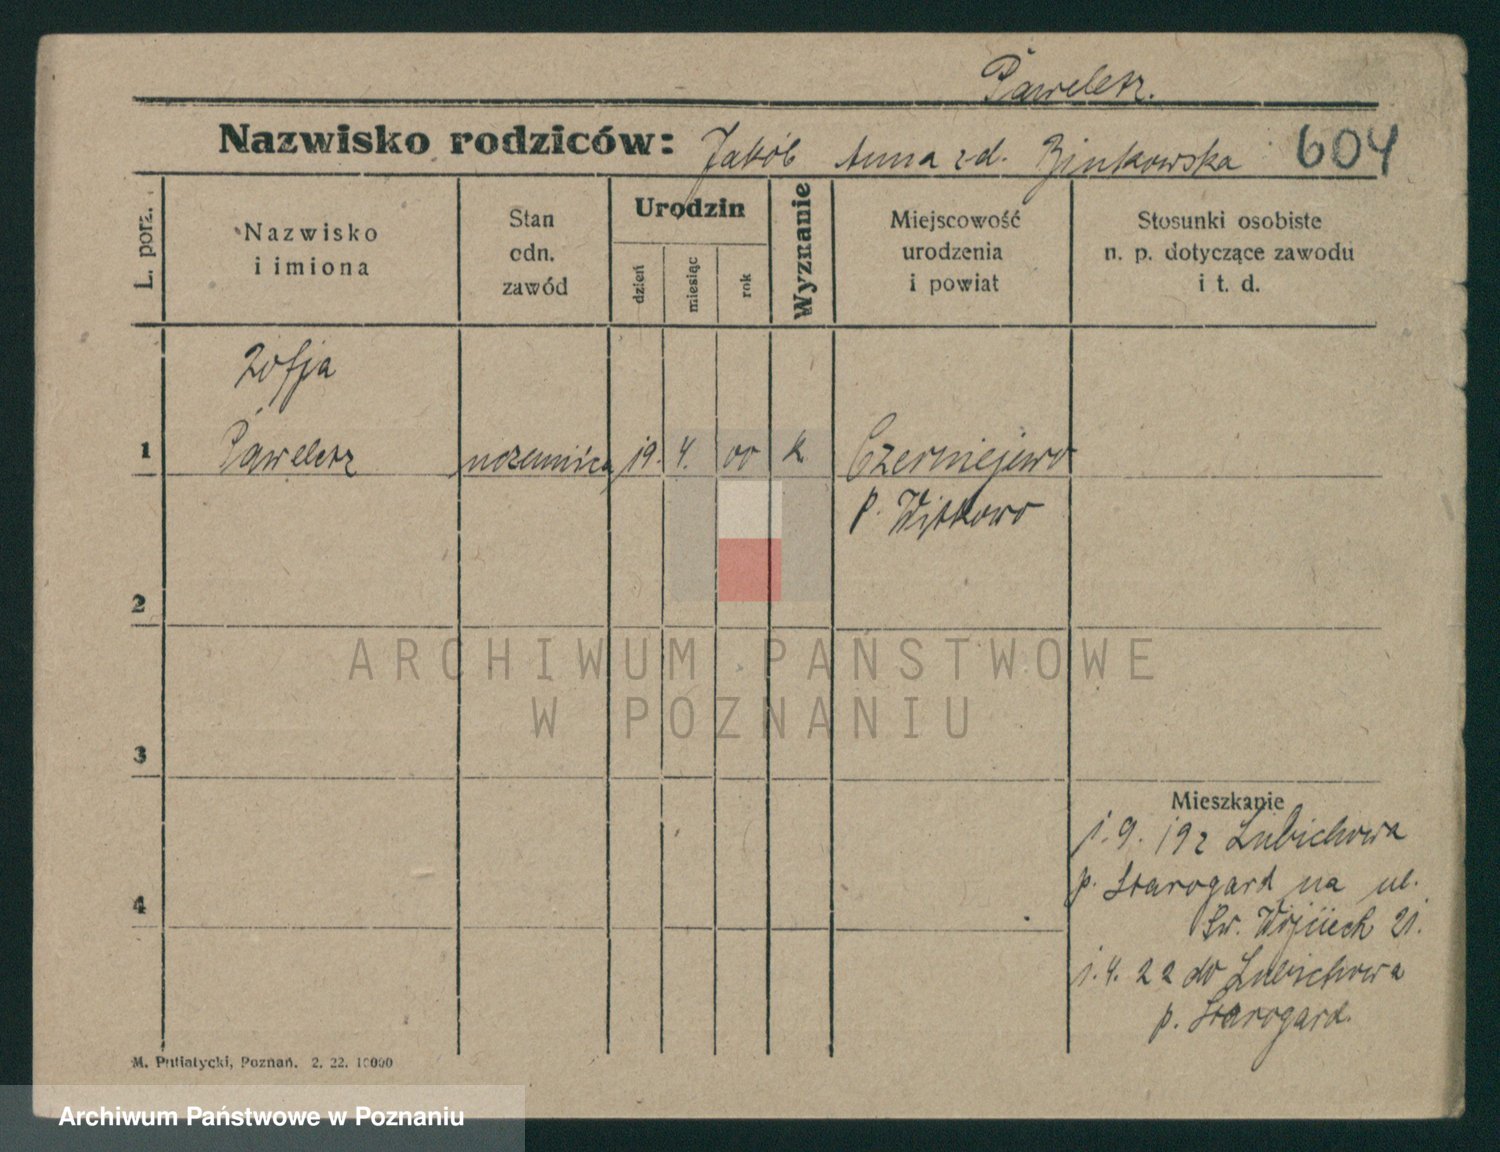 Pawełetz.
Nazwisko rodziców: Jakób Anna zd. Binkowska 604
L. porz.
Nazwisko
i imiona
Stan
odn.
zawód
Urodzin
dzień
miesiąc
rok
Wyznanie
Miejscowość
urodzenia
i powiat
Stosunki osobiste
n. p. dotyczące zawodu
i t. d.
Zofja
1 Paweletz uczennica 19. 4. 00 k Czerniejewo
p. Witkowo
2
ARCHIWUM PAŃSTWOWE
W POZNANIU
3
Mieszkanie
1.9.19 z Lubichowa
p. Starogard na ul.
4
Św. Wojciech 21.
1.4.22 do Lubichowa
p. Starogard.
M. Putiatycki, Poznań. 2. 22. 10000
Archiwum Państwowe w Poznaniu